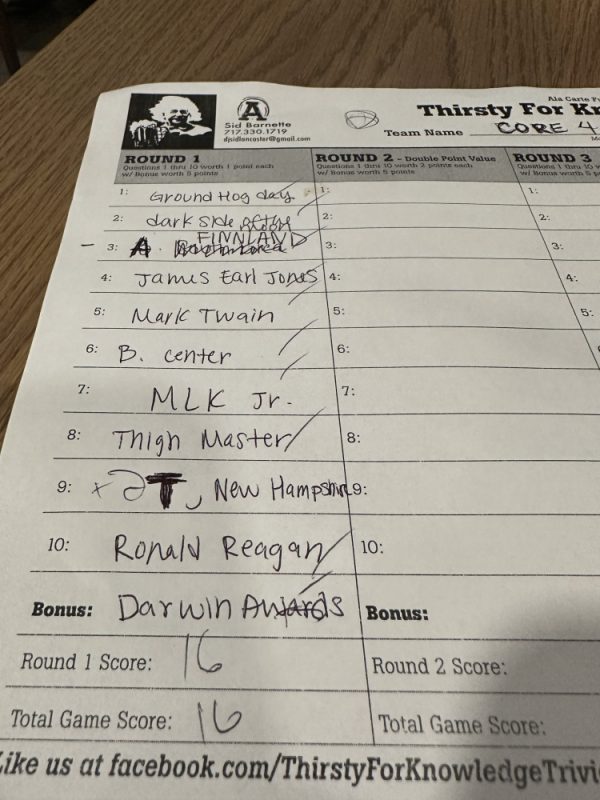 Ala Carte
Sid Barnette
717.330.1719
djsidlancaster@gmail.com
Thirsty For Kn
Team Name CORE 4
ROUND 1
Questions 1 thru 10 worth 1 point each
w/ Bonus worth 5 points
ROUND 2 - Double Point Value
Questions 1 thru 10 worth 2 points each
w/ Bonus worth 5 points
ROUND 3
Questions 1 thru 10 worth
w/ Bonus worth 5 points
1: Ground Hog day
2: dark side of the moon
3: A. FINNLAND
4: James Earl Jones
5: Mark Twain
6: B. center
7: MLK Jr.
8: Thigh Master
9: New Hampshire
10: Ronald Reagan
Bonus: Darwin Awards
Round 1 Score: 16
Total Game Score: 16
1:
2:
3:
4:
5:
6:
7:
8:
9:
10:
Bonus:
Round 2 Score:
Total Game Score:
1:
2:
3:
4:
5:
6:
Like us at facebook.com/ThirstyForKnowledgeTrivi